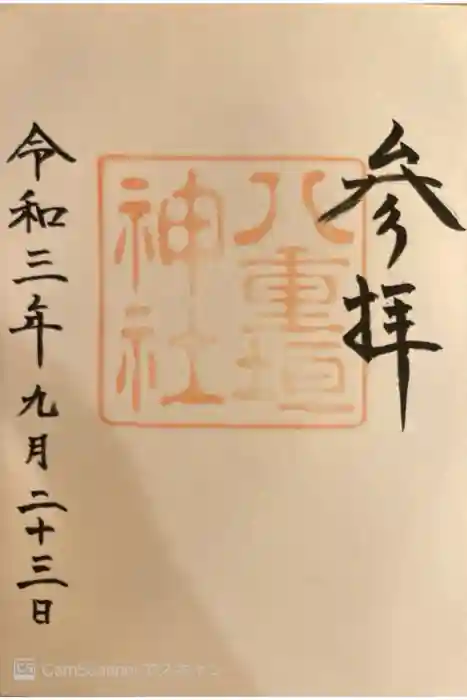 参拝
八重垣
神社
令和三年九月二十三日
CS CamScanner でスキャン